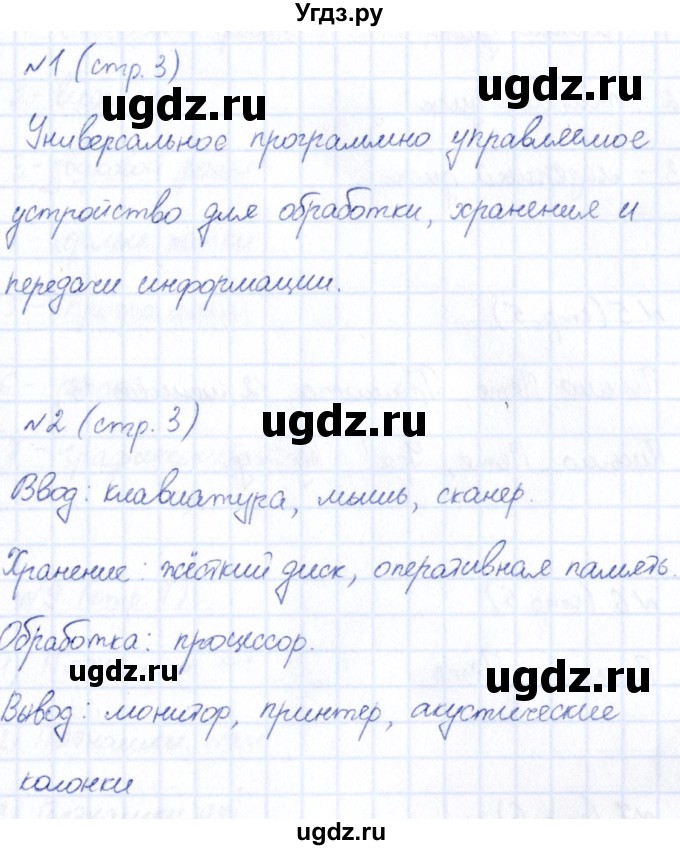 Угдз.ру
№1 (стр. 3)
ugdz.ru ugdz.ru
Универсальное программно управляемое
устройство для обработки, хранения и
передачи информации.
ugdz.ru ugdz.ru
№2 (стр. 3)
ugdz.ru
Ввод: клавиатура, мышь, сканер.
Хранение: жёсткий диск, оперативная память.
Обработка: процессор.
ugdz.ru ugdz.ru
Вывод: монитор, принтер, акустические
колонки
ugdz.ru